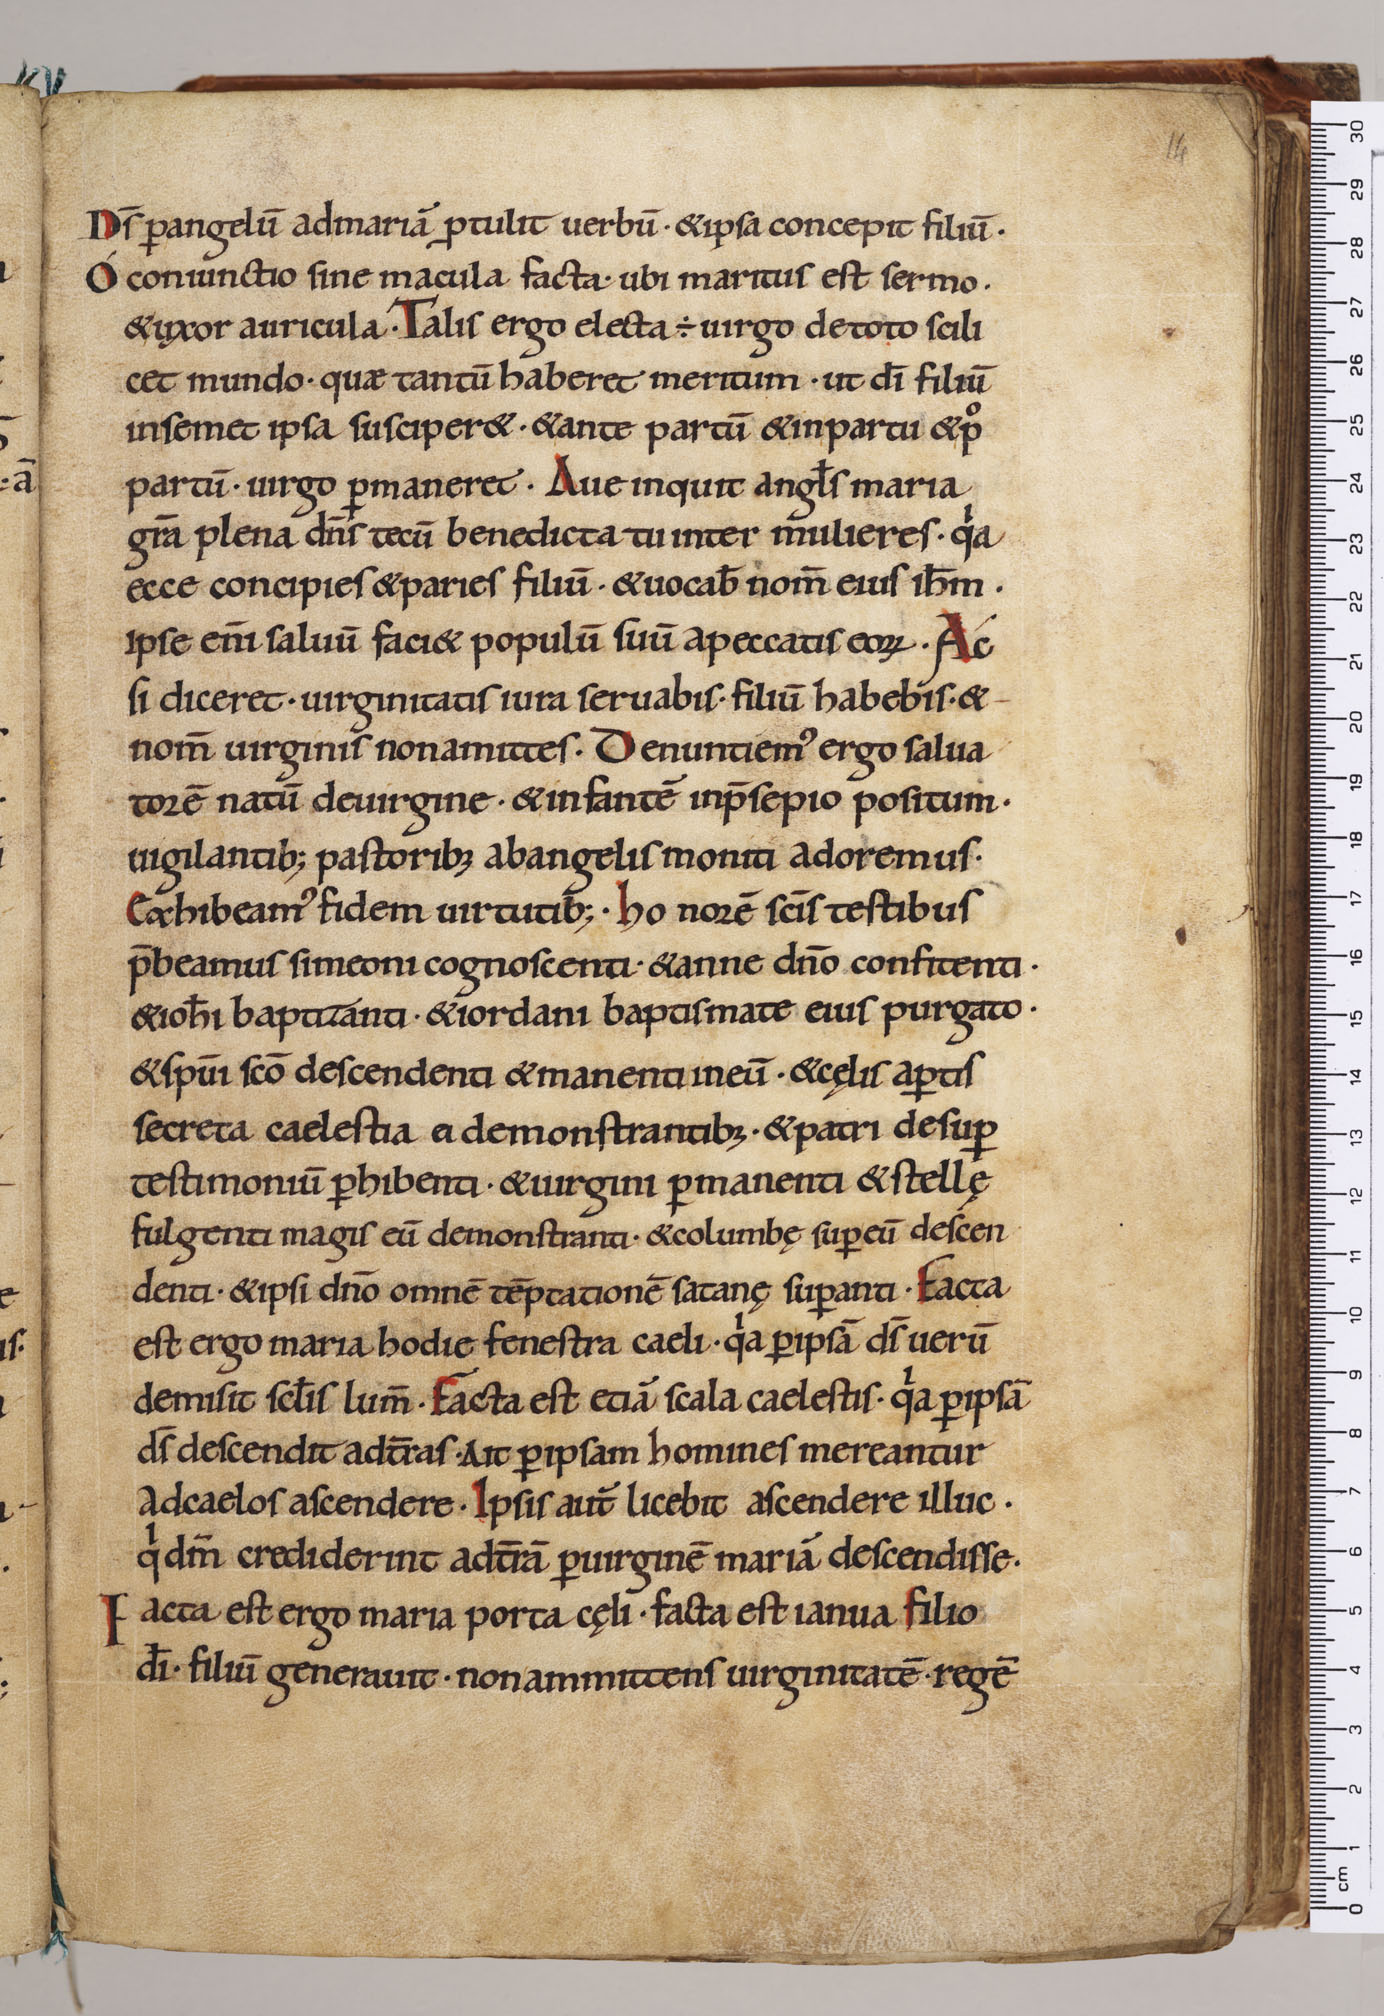 14
Ds̄ ꝑangelū admariā ꝓtulit uerbū · &ipsa concepit filiū ·
Ó coniunctio sine macula facta · ubi maritus est sermo ·
&uxor auricula · Talis ergo electa ÷ uirgo detoto scili
cet mundo · quæ tantū haberet meritum · ut dī filiū
insemet ipsa susciper& · &ante partū &inpartu &pͦ
partū · uirgo ꝑmaneret · Aue inquit angl̄s maria
gr̄a plena dn̄s tecū benedicta tu inter mulieres · qͥa
ecce concipies &paries filiū · &uocab̄ nom̄ eius ih̄m ·
ipse em̄ saluū faci& populū suū apeccatis eoꝝ · Ac
si diceret · uirginitatis iura seruabis · filiū habebis · &
nom̄ uirginis nonamittes · Denuntiemꝰ ergo salua
torē natū deuirgine · &infantē inp̄sepio positum ·
uigilantib; pastoribꝫ abangelis moniti adoremus ·
Exhibeamꝰ fidem uirtutib; · honorē sc̄is testibus
p̄beamus simeoni cognoscenti · &anne dn̄o confitenti ·
&ioh̄i baptizanti · &iordani baptismate eius purgato ·
&spūi sc̄o descendenti &manenti ineū · &cęlis aꝑtis
secreta caelestia ei demonstrantibꝫ · &patri desuꝑ
testimoniū ꝑhibenti · &uirgini ꝑmanenti &stellę
fulgenti magis eū demonstranti · &columbę suꝑeū descen
denti · &ipsi dn̄o omnē tēptationē satanę suꝑanti · Facta
est ergo maria hodie fenestra caeli · qͥa ꝑipsā ds̄ uerū
demisit scl̄is lum̄ · Facta est etiā scala caelestis · qͥa ꝑipsā
ds̄ descendit adt̄ras · Ait ꝑipsam homines mereantur
adcaelos ascendere · Ipsis aut̄ licebit ascendere illuc ·
qͥ dm̄ crediderint adt̄rā ꝑuirginē mariā descendisse ·
Facta est ergo maria porta cęli · facta est ianua filio
dī · filiū generauit · nonammittens uirginitatē · regē